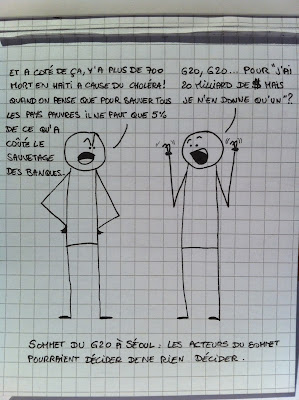 ET A COTÉ DE ÇA, Y'A PLUS DE 700
MORT EN HAITI A CAUSE DU CHOLÉRA!
QUAND ON PENSE QUE POUR SAUVER TOUS
LES PAYS PAUVRES IL NE FAUT QUE 5%
DE CE QU'A
COÛTÉ LE
SAUVETAGE
DES BANQUES...
G20, G20... POUR "J'AI
20 MILLIARD DE $ MAIS
JE N'EN DONNE QU'UN"?
SOMMET DU G20 À SÉOUL : LES ACTEURS DU SOMMET
POURRAIENT DÉCIDER DE NE RIEN DÉCIDER.